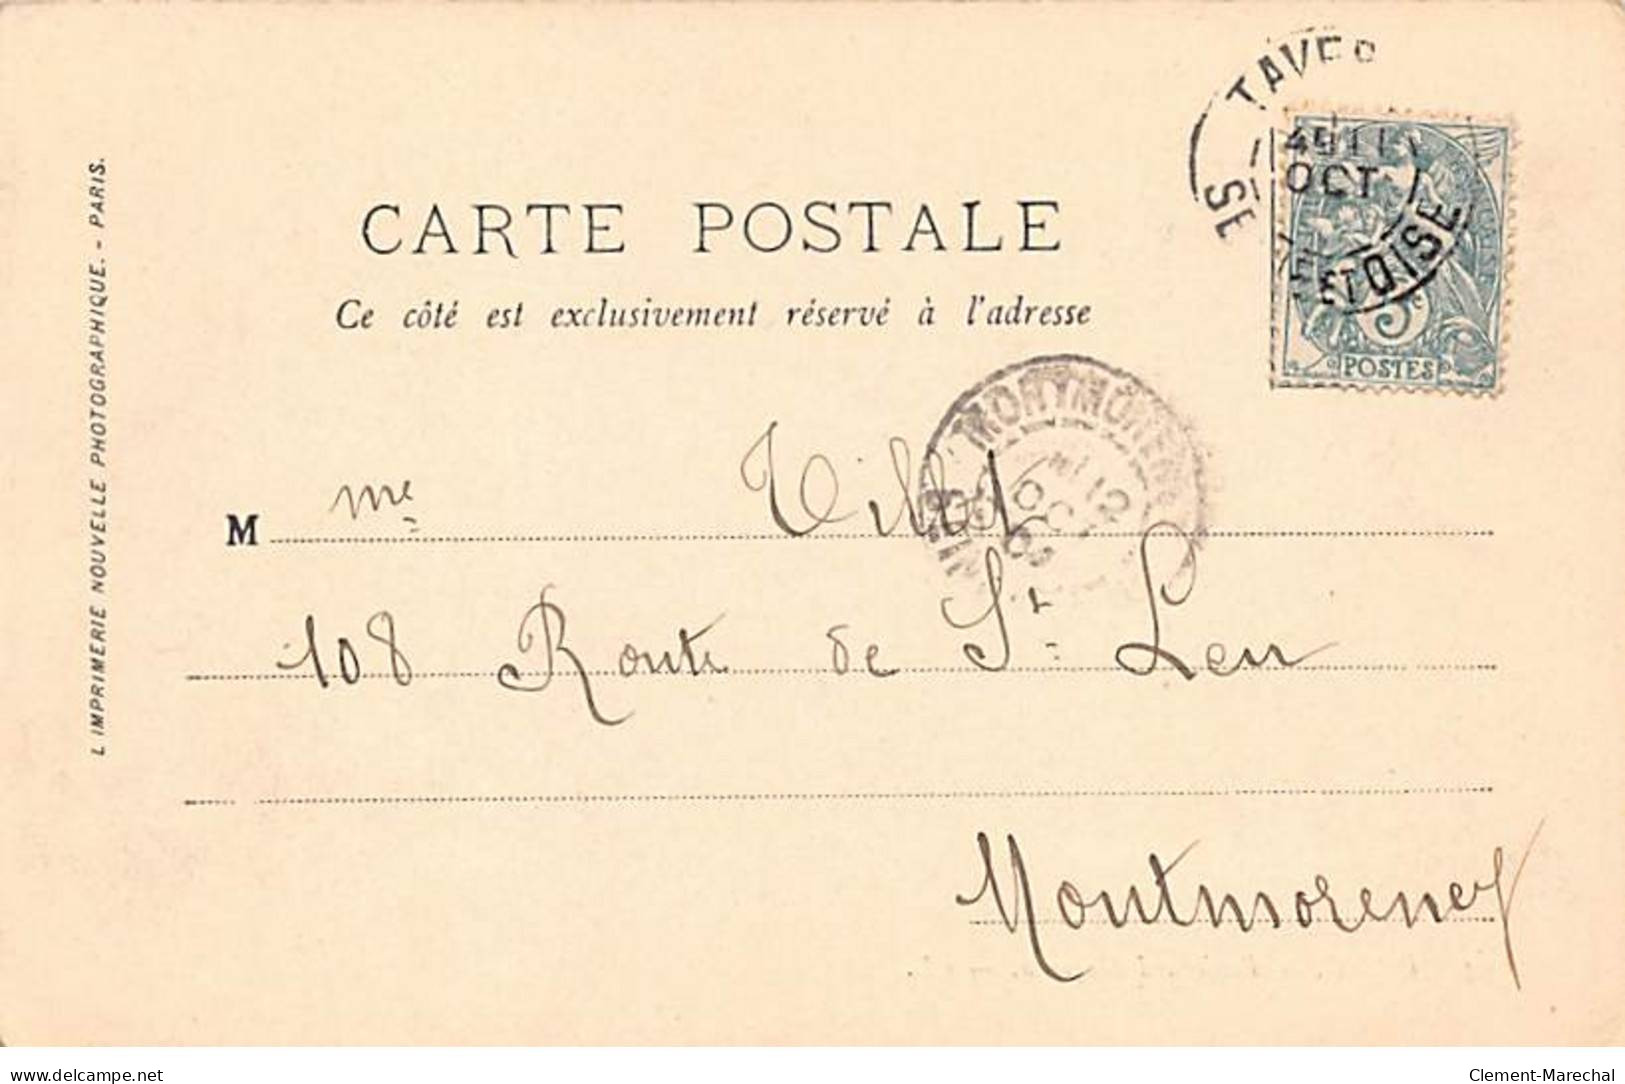 TAVER
OCT
SE
ET OISE
5c
POSTES
CARTE POSTALE
Ce côté est exclusivement réservé à l'adresse
L'IMPRIMERIE NOUVELLE PHOTOGRAPHIQUE. - PARIS.
OCT
M me
108 Route de St Leu
Montmorency
delcampe.net
Clement-Marechal